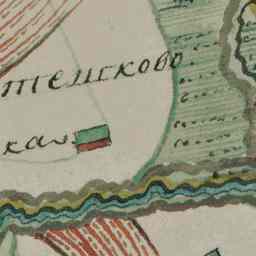 тенсково
кая